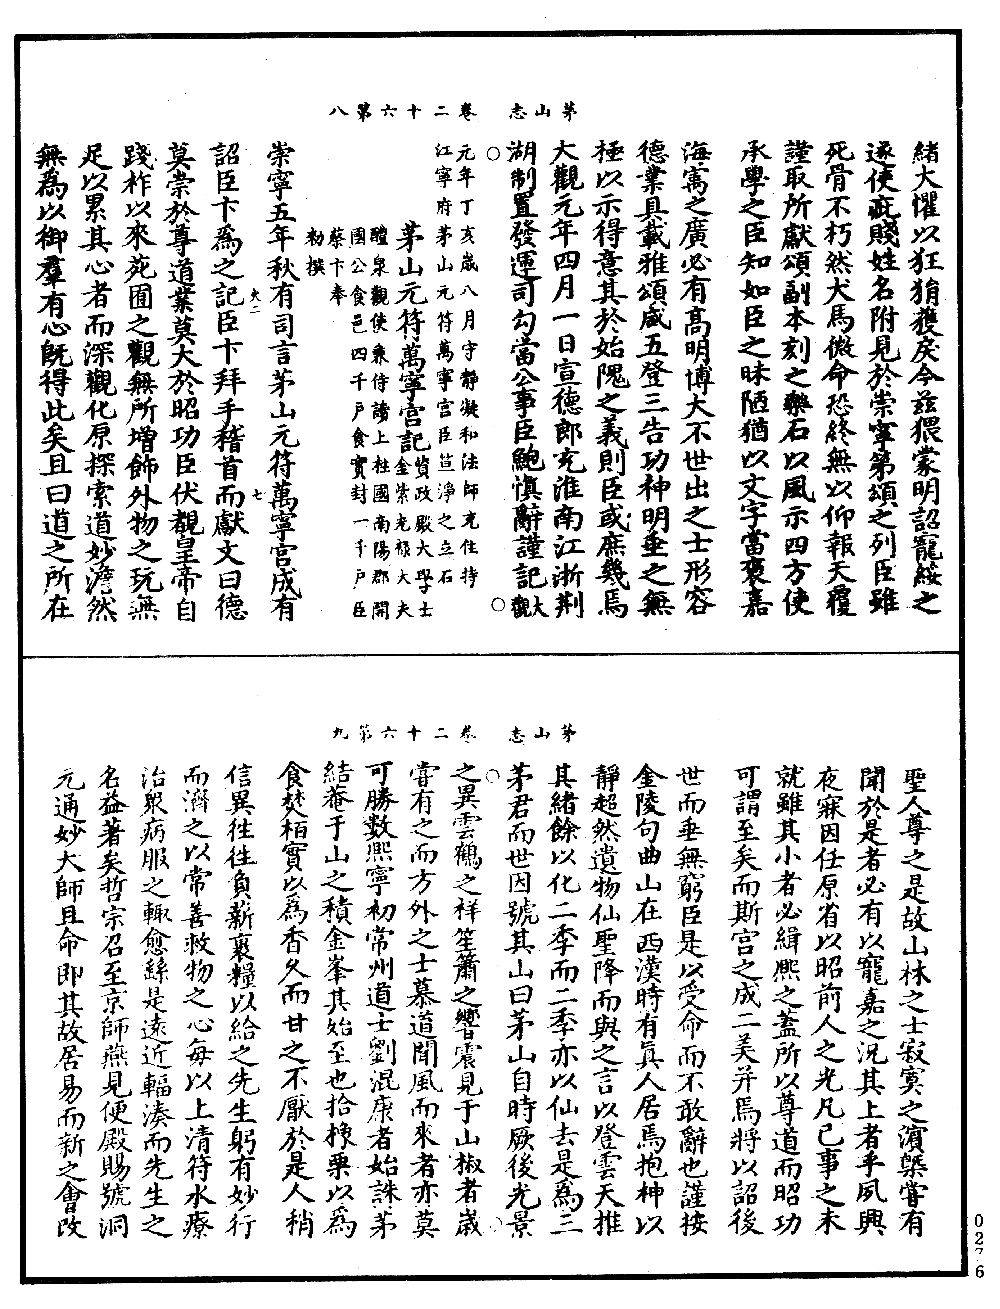 茅山志　卷二十六第八
緒大懼以狂狷獲戾今茲猥蒙明詔寵綏之
遂使疵賤姓名附見於崇寧第頌之列臣雖
死骨不朽然犬馬微命恐終無以仰報天覆
謹取所獻頌副本刻之樂石以風示四方使
承學之臣知如臣之昧陋猶以文字當褒嘉
海寓之廣必有高明博大不世出之士形容
德業具載雅頌咸五登三告功神明垂之無
極以示得意其於始隗之義則臣或庶幾焉
大觀元年四月一日宣德郎充淮南江浙荆
湖制置發運司勾當公事臣鮑慎辭謹記大觀
元年丁亥歲八月守靜凝和法師充住持
江寧府茅山元符萬寧宮臣笪淨之立石
茅山元符萬寧宮記資政殿大學士
金紫光祿大夫
醴泉觀使兼侍讀上柱國南陽郡開
國公食邑四千戶食實封一千戶臣
蔡卞奉
勑撰
崇寧五年秋有司言茅山元符萬寧宮成有
詔臣卞爲之記臣卞拜手稽首而獻文曰德
莫崇於尊道業莫大於昭功臣伏覩皇帝自
踐柞以來苑囿之觀無所增飾外物之玩無
足以累其心者而深觀化原探索道妙澹然
無為以御羣有心既得此矣且曰道之所在
茅山志　卷二十六第九
聖人尊之是故山林之士寂寞之濵槩嘗有
聞於是者必有以寵嘉之况其上者乎夙興
夜寐因任原省以昭前人之光凡已事之未
就雖其小者必緝熙之蓋所以尊道而昭功
可謂至矣而斯宮之成二美并焉將以詔後
世而垂無窮臣是以受命而不敢辭也謹按
金陵句曲山在西漢時有眞人居焉抱神以
靜超然遺物仙聖降而與之言以登雲天推
其緒餘以化二季而二季亦以仙去是爲三
茅君而世因號其山曰茅山自時厥後光景
之異雲鶴之祥笙簫之響震見于山椒者歲
嘗有之而方外之士慕道聞風而來者亦莫
可勝數熙寧初常州道士劉混康者始誅茅
結菴于山之積金峯其始至也拾橡栗以爲
食焚栢實以爲香久而甘之不厭於是人稍
信異往往負薪褁糧以給之先生躬有妙行
而濟之以常善救物之心每以上清符水療
治衆病服之輙愈繇是遠近輻湊而先生之
名益著矣哲宗召至京師燕見便殿賜號洞
元通妙大師且命即其故居易而新之會改
0276